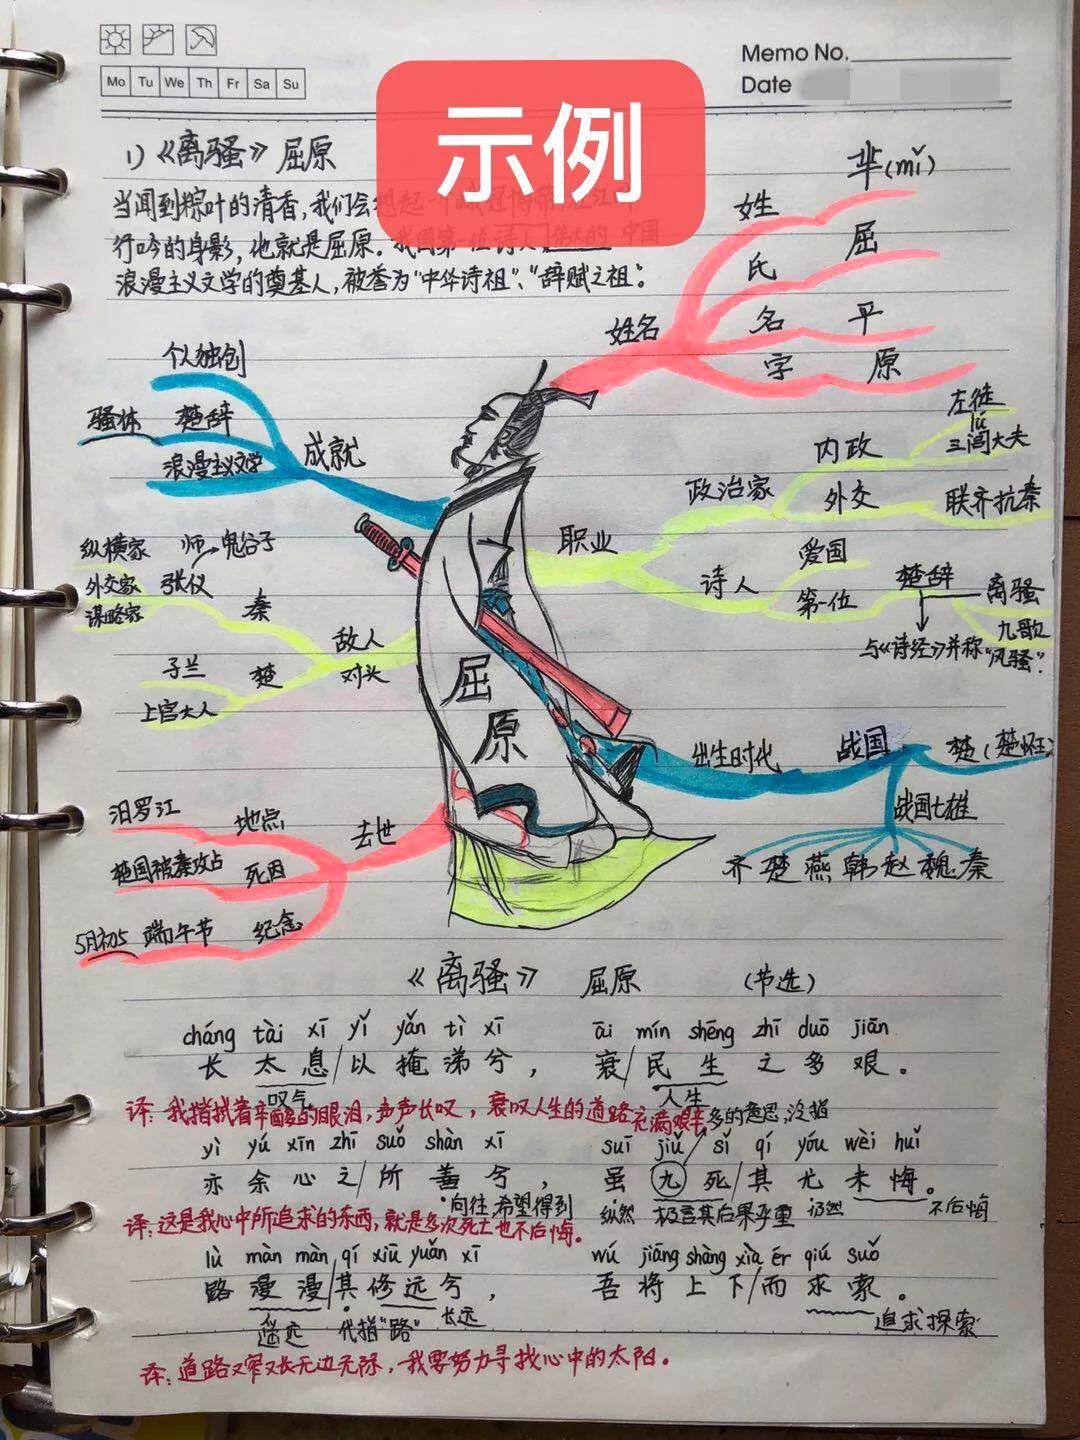 Memo No.
Mo Tu We Th Fr Sa Su
Date
示例
1)《离骚》 屈原
当闻到粽叶的清香,我们会想起一个峨冠博带,江
行吟的身影,他就是屈原。我国第一位诗人 伟大的 中国
浪漫主义文学的奠基人,被誉为"中华诗祖"、"辞赋之祖"。
姓名
姓 芈(mǐ)
氏 屈
名 平
字 原
成就
个人独创
骚体 楚辞
浪漫主义文学
职业
政治家
内政
左徒
lǘ
三闾大夫
外交 联齐抗秦
诗人
爱国
第一位 楚辞 离骚
九歌
与《诗经》并称"风骚"。
敌人
对头
秦
纵横家 师→鬼谷子
外交家 张仪
谋略家
楚
子兰
上官大人
屈原
出生时代 战国 楚(楚怀王)
战国七雄
齐 楚 燕 韩 赵 魏 秦
去世
汨罗江 地点
楚国被秦攻占 死因
5月初5 端午节 纪念
《离骚》 屈原 (节选)
cháng tài xī yǐ yǎn tì xī āi mín shēng zhī duō jiān
长太息/以掩涕兮, 哀/民生之多艰。
叹气 人生
译:我揩拭着辛酸的眼泪,声声长叹,哀叹人生的道路充满艰辛 多的意思,泛指
yì yú xīn zhī suǒ shàn xī suī jiǔ sǐ qí yóu wèi huǐ
亦余心之/所善兮, 虽九死/其尤未悔。
向往,希望得到 纵然 极言其后果严重 仍然 不后悔
译:这是我心中所追求的东西,就是多次死亡也不后悔。
lù màn màn qí xiū yuǎn xī wú jiāng shàng xià ér qiú suǒ
路漫漫/其修远兮, 吾将上下/而求索。
遥远 代指"路" 长远 追求探索
译:道路又窄又长无边无际,我要努力寻找心中的太阳。